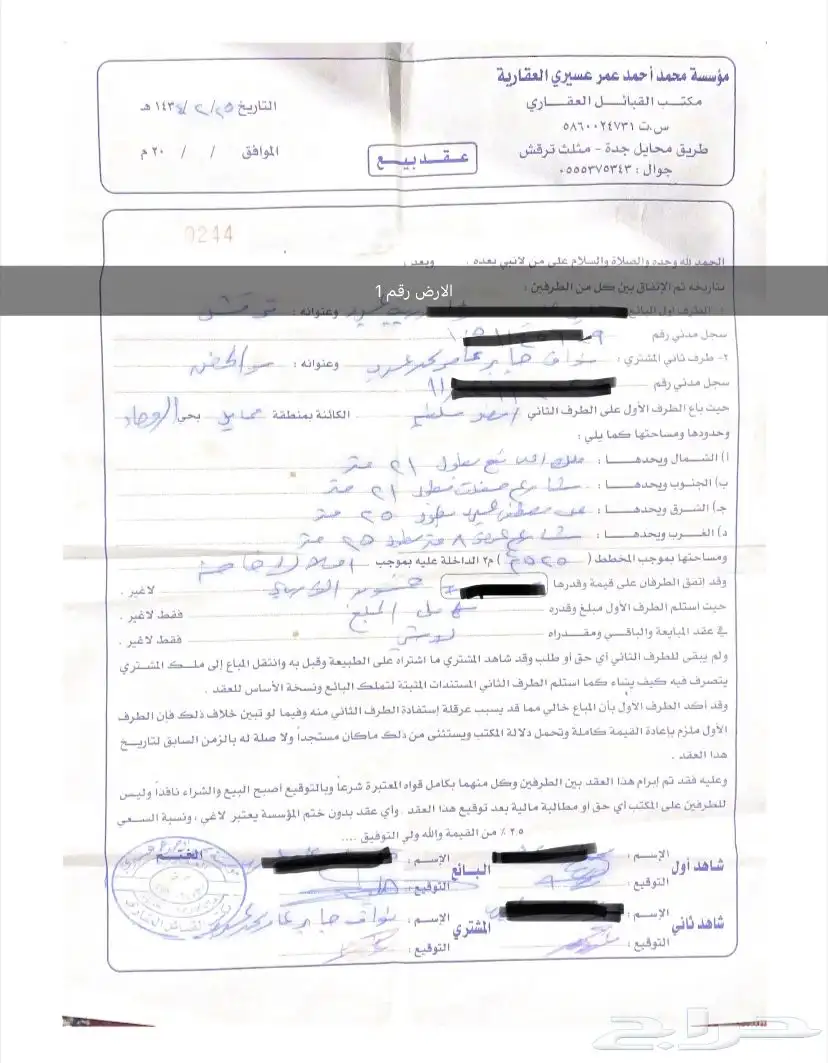 مؤسسة محمد أحمد عمر عسيري العقارية
مكتب القبائل العقاري
س.ت ٥٨٦٠٠٢٤٧٣١
طريق محايل جدة - مثلث ترقش
جوال : ٠٥٥٥٣٧٥٣٤٣
عقد بيع
التاريخ ٢٥/٢/١٤٣٤ هـ
الموافق / / ٢٠ م
0244
الحمد لله وحده والصلاة والسلام على من لانبي بعده . وبعد ،
بتاريخه تم الإتفاق بين كل من الطرفين :
الارض رقم 1
الطرف أول البائع وعنوانه : ترقش
سجل مدني رقم
٢- طرف ثاني المشتري : نواف جابر عامر محمد عسيري وعنوانه :
سجل مدني رقم
حيث باع الطرف الأول على الطرف الثاني الكائنة بمنطقة محايل بحي
وحدودها ومساحتها كما يلي :
أ) الشمال ويحدها : بطول ٢١ متر
ب) الجنوب ويحدها : شارع بطول ٢١ متر
ج) الشرق ويحدها : بطول ٢٥ متر
د) الغرب ويحدها : شارع عرض ٨ متر بطول ٢٥ متر
ومساحتها بموجب المخطط ( ) م٢ الداخلة عليه بموجب
وقد إتفق الطرفان على قيمة وقدرها لاغير .
حيث استلم الطرف الأول مبلغ وقدره كامل المبلغ فقط لاغير .
في عقد المبايعة والباقي ومقدراه فقط لاغير .
ولم يبقى للطرف الثاني أي حق أو طلب وقد شاهد المشتري ما اشتراه على الطبيعة وقبل به وانتقل المباع إلى ملك المشتري
يتصرف فيه كيف يشاء كما استلم الطرف الثاني المستندات المثبتة لتملك البائع ونسخة الأساس للعقد .
وقد أكد الطرف الأول بأن المباع خالي مما قد يسبب عرقلة إستفادة الطرف الثاني منه وفيما لو تبين خلاف ذلك فإن الطرف
الأول ملزم بإعادة القيمة كاملة وتحمل دلالة المكتب ويستثنى من ذلك ماكان مستجداً ولا صلة له بالزمن السابق لتاريخ
هذا العقد .
وعليه فقد تم إبرام هذا العقد بين الطرفين وكل منهما بكامل قواه المعتبرة شرعاً وبالتوقيع أصبح البيع والشراء نافذاً وليس
للطرفين على المكتب أي حق أو مطالبة مالية بعد توقيع هذا العقد . وأي عقد بدون ختم المؤسسة يعتبر لاغي ، ونسبة السعي
٢.٥ ٪ من القيمة والله ولي التوفيق ....
شاهد أول الإسم : البائع الإسم : الختم
التوقيع : التوقيع :
شاهد ثاني الإسم : المشتري الإسم : نواف جابر عامر محمد عسيري
التوقيع : التوقيع :
حراج